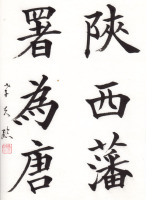 陝西藩
署為唐